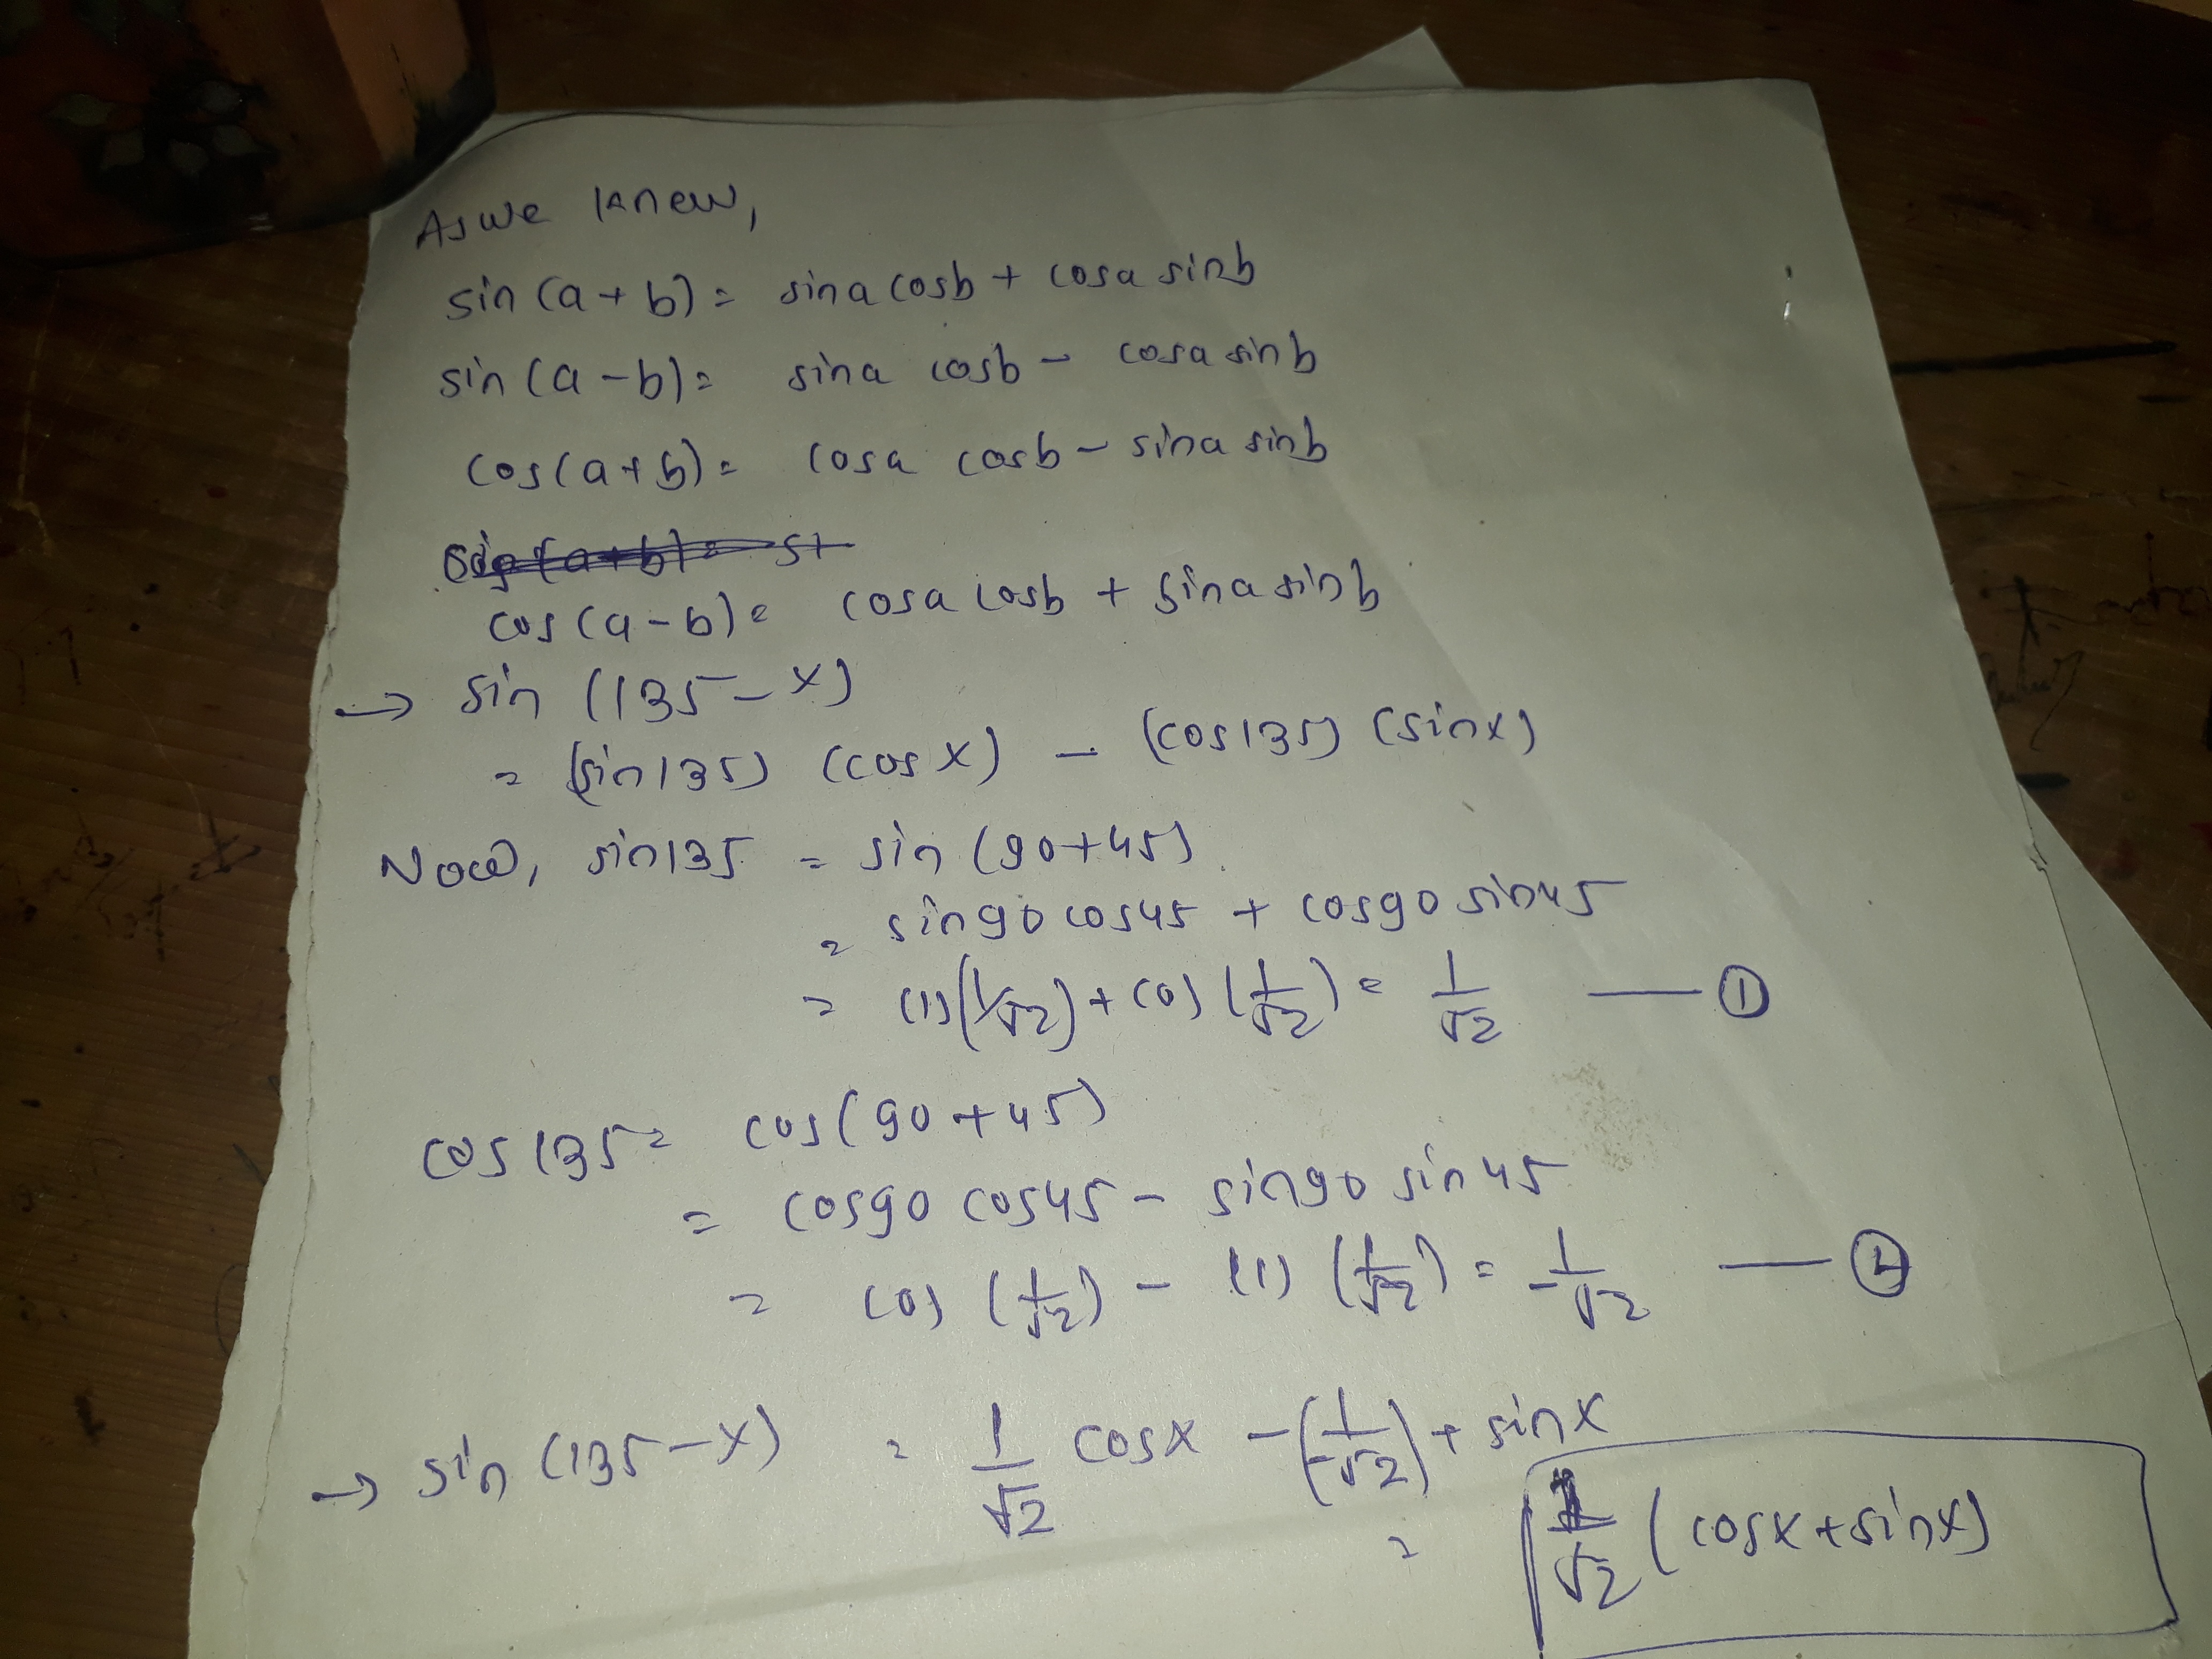 As we knew,
sin (a + b) = sina cosb + cosa sinb
sin (a - b) = sina cosb - cosa sinb
cos (a + b) = cosa cosb - sina sinb
cos (a - b) = cosa cosb + sina sinb
→ sin (135 - x)
= (sin 135) (cos x) - (cos 135) (sin x)
Now, sin 135 = sin (90 + 45)
= sin 90 cos 45 + cos 90 sin 45
= (1) (1/√2) + (0) (1/√2) = 1/√2 — ①
cos 135 = cos (90 + 45)
= cos 90 cos 45 - sin 90 sin 45
= (0) (1/√2) - (1) (1/√2) = -1/√2 — ②
→ sin (135 - x) = 1/√2 cos x - (1/-√2) + sin x
= 1/√2 (cos x + sin x)